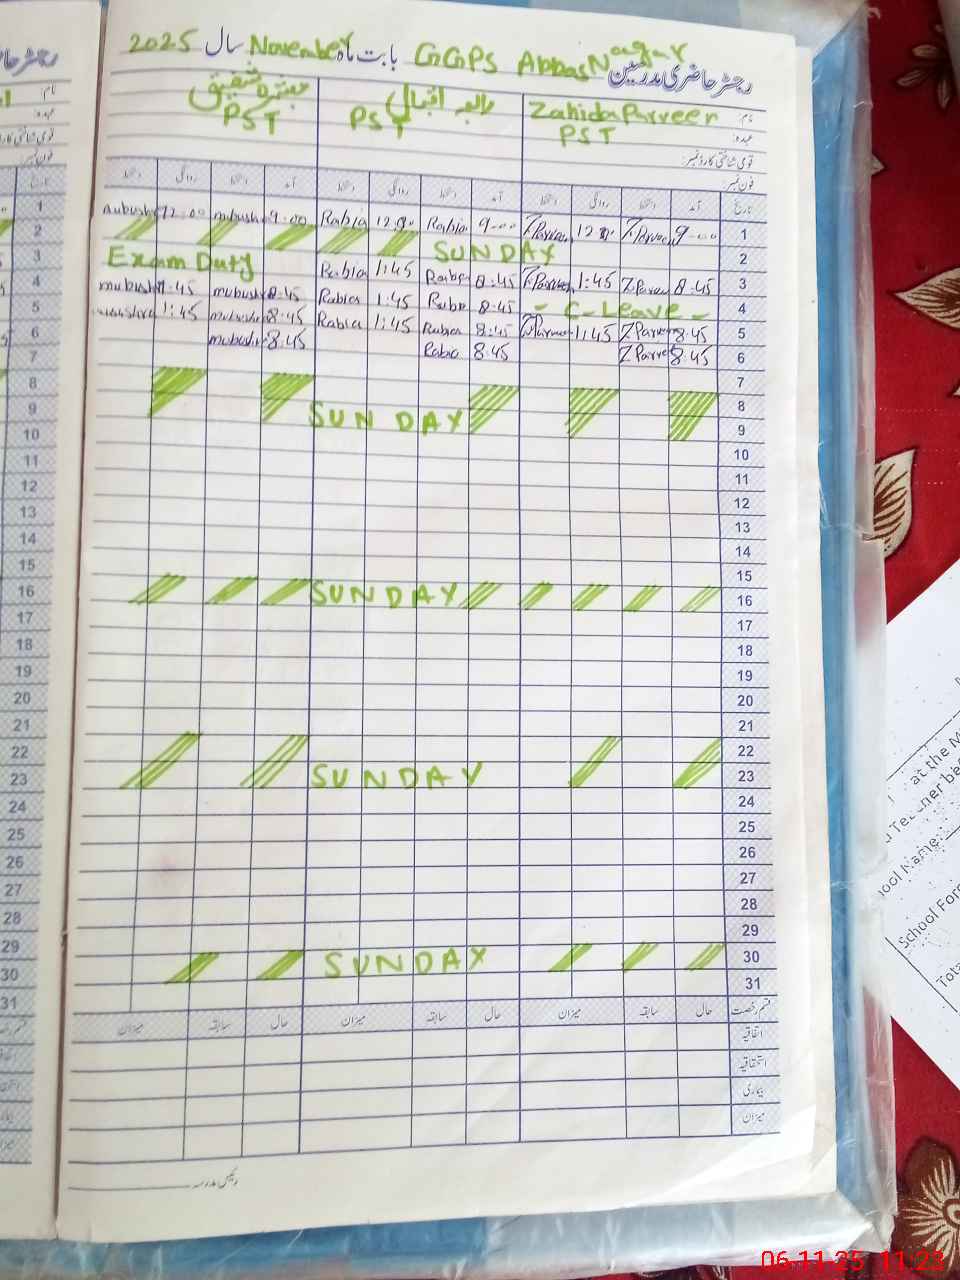 رجسٹر حاضری مدرسین GGPS Abbas Nagar بابت ماہ November سال 2025
نام: Zahida Parveen رابعہ اقبال مبشرہ شفیق
عہدہ: PST PST PST
قومی شناختی کارڈ نمبر:
فون نمبر:
تاریخ آمد دستخط روانگی دستخط آمد دستخط روانگی دستخط آمد دستخط روانگی دستخط
1 9-00 Z.Parveen 12:00 Z.Parveen 9-00 Rabia 12:00 Rabia 9:00 mubushra 12:00 mubushra
2 SUNDAY
3 8:45 Z.Parveen 1:45 Z.Parveen 8:45 Rabia 1:45 Rabia Exam Duty
4 - C-Leave - 8:45 Rabia 1:45 Rabia 8:45 mubushra 1:45 mubushra
5 8:45 Z.Parveen 1:45 Z.Parveen 8:45 Rabia 1:45 Rabia 8:45 mubushra 1:45 mubushra
6 8:45 Z Parveen 8:45 Rabia 8:45 mubushra
7
8
9 SUNDAY
10
11
12
13
14
15
16 SUNDAY
17
18
19
20
21
22
23 SUNDAY
24
25
26
27
28
29
30 SUNDAY
31
قسم رخصت حال سابقہ میزان حال سابقہ میزان حال سابقہ میزان
اتفاقیہ
استحقاقیہ
بیماری
میزان
رئیس مدرسہ
at the M
School Name:
School For
Tota
06.11.25 11:23